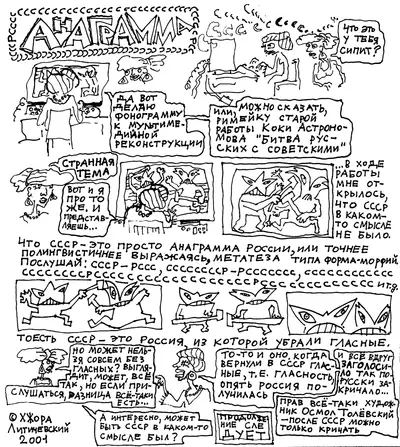 АНАГРАММА
ЧТО ЭТО
У ТЕБЯ
СИПИТ?
ДА ВОТ
ДЕЛАЮ
ФОНОГРАММУ
К МУЛЬТИМЕ-
ДИЙНОЙ
РЕКОНСТРУКЦИИ
ИЛИ, МОЖНО СКАЗАТЬ,
РИМЕЙКУ СТАРОЙ
РАБОТЫ КОКИ АСТРОНО-
МОВА "БИТВА РУС-
СКИХ С СОВЕТСКИМИ"
СТРАННАЯ
ТЕМА
ВОТ И Я
ПРО ТО
ЖЕ, И
ПРЕДСТАВ-
ЛЯЕШЬ...
...В ХОДЕ
РАБОТЫ
МНЕ ОТ-
КРЫЛОСЬ,
ЧТО СССР
В КАКОМ-
ТО СМЫСЛЕ
НЕ БЫЛО.
ЧТО СССР-ЭТО ПРОСТО АНАГРАММА РОССИИ, ИЛИ ТОЧНЕЕ
ПОЛИНГВИСТИЧНЕЕ ВЫРАЖАЯСЬ, МЕТАТЕЗА ТИПА ФОРМА-МОРФИЙ
ПОСЛУШАЙ: СССР-РССС, СССССССР-РССССССС, СССССССССССС
И Т.Д.
ТОЕСТЬ СССР-ЭТО РОССИЯ, ИЗ КОТОРОЙ УБРАЛИ ГЛАСНЫЕ.
НО МОЖЕТ НЕЛЬ-
ЗЯ СОВСЕМ БЕЗ
ГЛАСНЫХ? ВЫГЛЯ-
ДИТ, МОЖЕТ, ВСЁ
ТАК, НО ЕСЛИ ПРИ-
СЛУШАТЬСЯ, РАЗНИЦА ВСЁ-ТАКИ
ЕСТЬ...
ТО-ТО И ОНО, КОГДА
ВЕРНУЛИ В СССР ГЛАС-
НЫЕ, Т.Е. ГЛАСНОСТЬ
ОПЯТЬ РОССИЯ ПО-
ЛУЧИЛАСЬ
И ВСЁ ВДРУГ
ЗАГОЛОСИ-
ЛО ТАК ПО-
РУССКИ ЗА-
КРИЧАЛО...
А ИНТЕРЕСНО, МОЖЕТ
БЫТЬ СССР В КАКОМ-ТО
СМЫСЛЕ БЫЛ?
ПРОДОЛЖЕ-
НИЕ СЛЕ-
ДУЕТ
ПРАВ ВСЁ-ТАКИ ХУДОЖ-
НИК ОСМОЛ ТОЛЁВСКИЙ
-ПОСЛЕ СССР МОЖНО
ТОЛЬКО КРИЧАТЬ
© ХЖОРА
ЛИТИЧЕВСКИЙ
2001